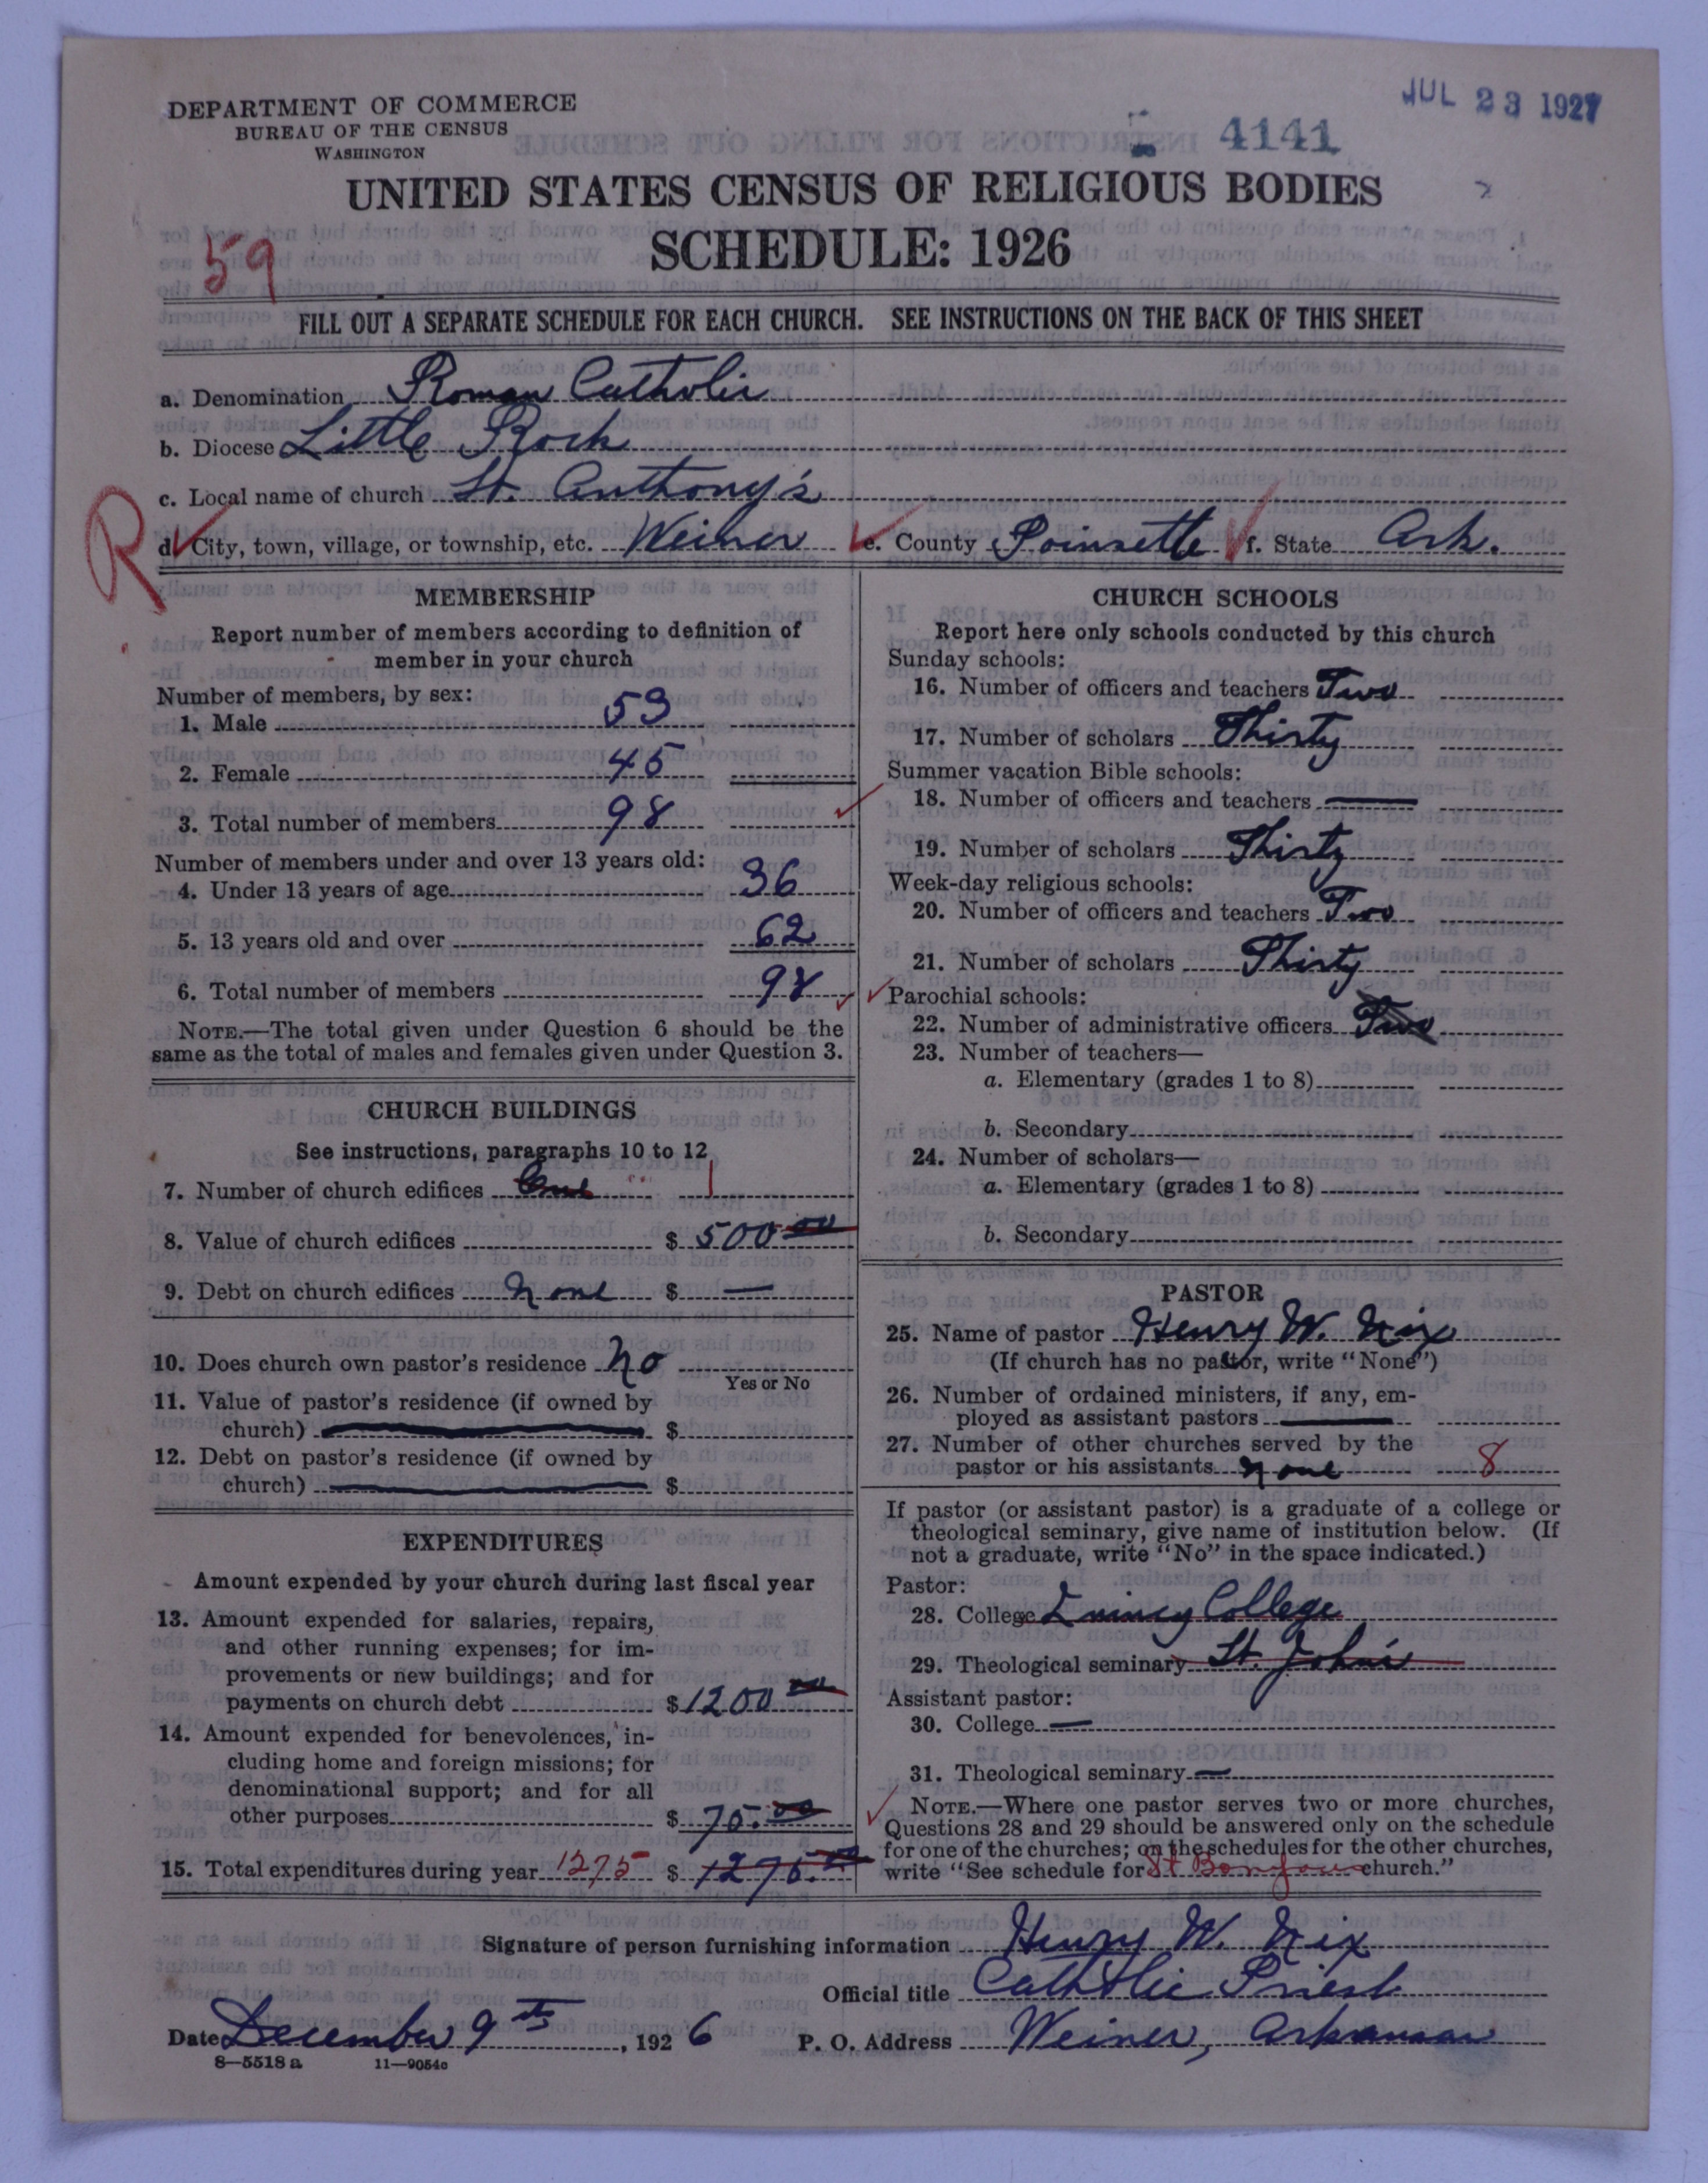 DEPARTMENT OF COMMERCE
BUREAU OF THE CENSUS
WASHINGTON
JUL 23 1927
4141
UNITED STATES CENSUS OF RELIGIOUS BODIES
SCHEDULE: 1926
59
FILL OUT A SEPARATE SCHEDULE FOR EACH CHURCH. SEE INSTRUCTIONS ON THE BACK OF THIS SHEET
a. Denomination Roman Catholic
b. Diocese Little Rock
c. Local name of church St. Anthony's
R
d. City, town, village, or township, etc. Weiner e. County Poinsette f. State Ark.
MEMBERSHIP
Report number of members according to definition of
member in your church
Number of members, by sex:
1. Male 53
2. Female 45
3. Total number of members 98
Number of members under and over 13 years old:
4. Under 13 years of age 36
5. 13 years old and over 62
6. Total number of members 98
NOTE.—The total given under Question 6 should be the
same as the total of males and females given under Question 3.
CHURCH BUILDINGS
See instructions, paragraphs 10 to 12
7. Number of church edifices One 1
8. Value of church edifices $ 500 00
9. Debt on church edifices none $ —
10. Does church own pastor's residence no
Yes or No
11. Value of pastor's residence (if owned by
church) $
12. Debt on pastor's residence (if owned by
church) $
EXPENDITURES
Amount expended by your church during last fiscal year
13. Amount expended for salaries, repairs,
and other running expenses; for im-
provements or new buildings; and for
payments on church debt $ 1200 00
14. Amount expended for benevolences, in-
cluding home and foreign missions; for
denominational support; and for all
other purposes $ 75.00
15. Total expenditures during year 1275 $ 1275.00
CHURCH SCHOOLS
Report here only schools conducted by this church
Sunday schools:
16. Number of officers and teachers Two
17. Number of scholars Thirty
Summer vacation Bible schools:
18. Number of officers and teachers —
19. Number of scholars Thirty
Week-day religious schools:
20. Number of officers and teachers Two
21. Number of scholars Thirty
Parochial schools:
22. Number of administrative officers Two
23. Number of teachers—
a. Elementary (grades 1 to 8)
b. Secondary
24. Number of scholars—
a. Elementary (grades 1 to 8)
b. Secondary
PASTOR
25. Name of pastor Henry W. Nix
(If church has no pastor, write "None")
26. Number of ordained ministers, if any, em-
ployed as assistant pastors —
27. Number of other churches served by the
pastor or his assistants none 8
If pastor (or assistant pastor) is a graduate of a college or
theological seminary, give name of institution below. (If
not a graduate, write "No" in the space indicated.)
Pastor:
28. College Quincy College
29. Theological seminary St. John's
Assistant pastor:
30. College —
31. Theological seminary —
NOTE.—Where one pastor serves two or more churches,
Questions 28 and 29 should be answered only on the schedule
for one of the churches; on the schedules for the other churches,
write "See schedule for St church."
Signature of person furnishing information Henry W. Nix
Official title Catholic Priest
Date December 9th, 1926 P. O. Address Weiner, Arkansas
8—5518 a 11—9054c